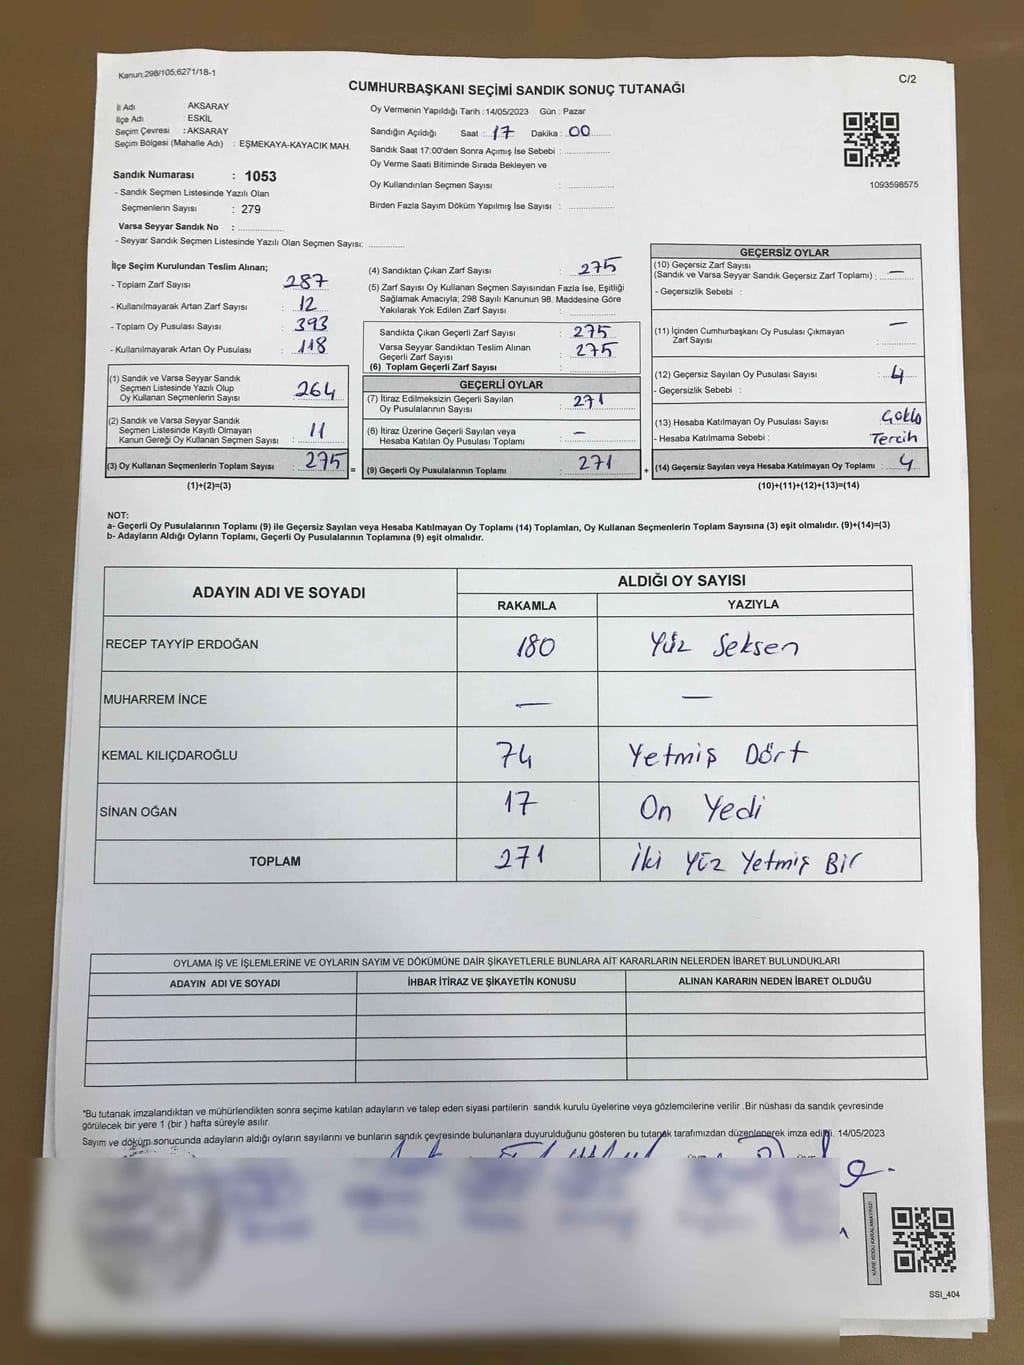 Kanun:298/105;6271/18-1
C/2
CUMHURBAŞKANI SEÇİMİ SANDIK SONUÇ TUTANAĞI
İl Adı : AKSARAY
İlçe Adı : ESKİL
Seçim Çevresi : AKSARAY
Seçim Bölgesi (Mahalle Adı) : EŞMEKAYA-KAYACIK MAH.
Sandık Numarası : 1053
- Sandık Seçmen Listesinde Yazılı Olan
Seçmenlerin Sayısı : 279
Varsa Seyyar Sandık No : ..............
- Seyyar Sandık Seçmen Listesinde Yazılı Olan Seçmen Sayısı: ............
Oy Vermenin Yapıldığı Tarih : 14/05/2023 Gün : Pazar
Sandığın Açıldığı Saat : 17 Dakika : 00
Sandık Saat 17:00'den Sonra Açımış İse Sebebi : ..............
Oy Verme Saati Bitiminde Sırada Bekleyen ve
Oy Kullandırılan Seçmen Sayısı : ..............
Birden Fazla Sayım Döküm Yapılmış İse Sayısı : ..............
1093598575
İlçe Seçim Kurulundan Teslim Alınan;
- Toplam Zarf Sayısı : 287
- Kullanılmayarak Artan Zarf Sayısı : 12
- Toplam Oy Pusulası Sayısı : 393
- Kullanılmayarak Artan Oy Pusulası : 118
(1) Sandık ve Varsa Seyyar Sandık
Seçmen Listesinde Yazılı Olup
Oy Kullanan Seçmenlerin Sayısı : 264
(2) Sandık ve Varsa Seyyar Sandık
Seçmen Listesinde Kayıtlı Olmayan
Kanun Gereği Oy Kullanan Seçmen Sayısı : 11
(3) Oy Kullanan Seçmenlerin Toplam Sayısı : 275 =
(1)+(2)=(3)
(4) Sandıktan Çıkan Zarf Sayısı : 275
(5) Zarf Sayısı Oy Kullanan Seçmen Sayısından Fazla İse, Eşitliği
Sağlamak Amacıyla; 298 Sayılı Kanunun 98. Maddesine Göre
Yakılarak Yok Edilen Zarf Sayısı : ..............
Sandıkta Çıkan Geçerli Zarf Sayısı : 275
Varsa Seyyar Sandıktan Teslim Alınan
Geçerli Zarf Sayısı : 275
(6) Toplam Geçerli Zarf Sayısı : ..............
GEÇERLİ OYLAR
(7) İtiraz Edilmeksizin Geçerli Sayılan
Oy Pusulalarının Sayısı : 271
(8) İtiraz Üzerine Geçerli Sayılan veya
Hesaba Katılan Oy Pusulası Toplamı : —
(9) Geçerli Oy Pusulalarının Toplamı : 271 +
GEÇERSİZ OYLAR
(10) Geçersiz Zarf Sayısı
(Sandık ve Varsa Seyyar Sandık Geçersiz Zarf Toplamı) : —
- Geçersizlik Sebebi :
(11) İçinden Cumhurbaşkanı Oy Pusulası Çıkmayan —
Zarf Sayısı : ..............
(12) Geçersiz Sayılan Oy Pusulası Sayısı : 4
- Geçersizlik Sebebi :
(13) Hesaba Katılmayan Oy Pusulası Sayısı : Çoklu
- Hesaba Katılmama Sebebi : Tercih
(14) Geçersiz Sayılan veya Hesaba Katılmayan Oy Toplamı : 4
(10)+(11)+(12)+(13)=(14)
NOT:
a- Geçerli Oy Pusulalarının Toplamı (9) ile Geçersiz Sayılan veya Hesaba Katılmayan Oy Toplamı (14) Toplamları, Oy Kullanan Seçmenlerin Toplam Sayısına (3) eşit olmalıdır. (9)+(14)=(3)
b- Adayların Aldığı Oyların Toplamı, Geçerli Oy Pusulalarının Toplamına (9) eşit olmalıdır.
ADAYIN ADI VE SOYADI ALDIĞI OY SAYISI
RAKAMLA YAZIYLA
RECEP TAYYİP ERDOĞAN 180 Yüz Seksen
MUHARREM İNCE — —
KEMAL KILIÇDAROĞLU 74 Yetmiş Dört
SİNAN OĞAN 17 On Yedi
TOPLAM 271 İki Yüz Yetmiş Bir
OYLAMA İŞ VE İŞLEMLERİNE VE OYLARIN SAYIM VE DÖKÜMÜNE DAİR ŞİKAYETLERLE BUNLARA AİT KARARLARIN NELERDEN İBARET BULUNDUKLARI
ADAYIN ADI VE SOYADI İHBAR İTİRAZ VE ŞİKAYETİN KONUSU ALINAN KARARIN NEDEN İBARET OLDUĞU
*Bu tutanak imzalandıktan ve mühürlendikten sonra seçime katılan adayların ve talep eden siyasi partilerin sandık kurulu üyelerine veya gözlemcilerine verilir .Bir nüshası da sandık çevresinde
görülecek bir yere 1 (bir ) hafta süreyle asılır.
Sayım ve döküm sonucunda adayların aldığı oyların sayılarını ve bunların sandık çevresinde bulunanlara duyurulduğunu gösteren bu tutanak tarafımızdan düzenlenerek imza edildi. 14/05/2023
KARE KODU KARALAMAYINIZ!
SSI_404